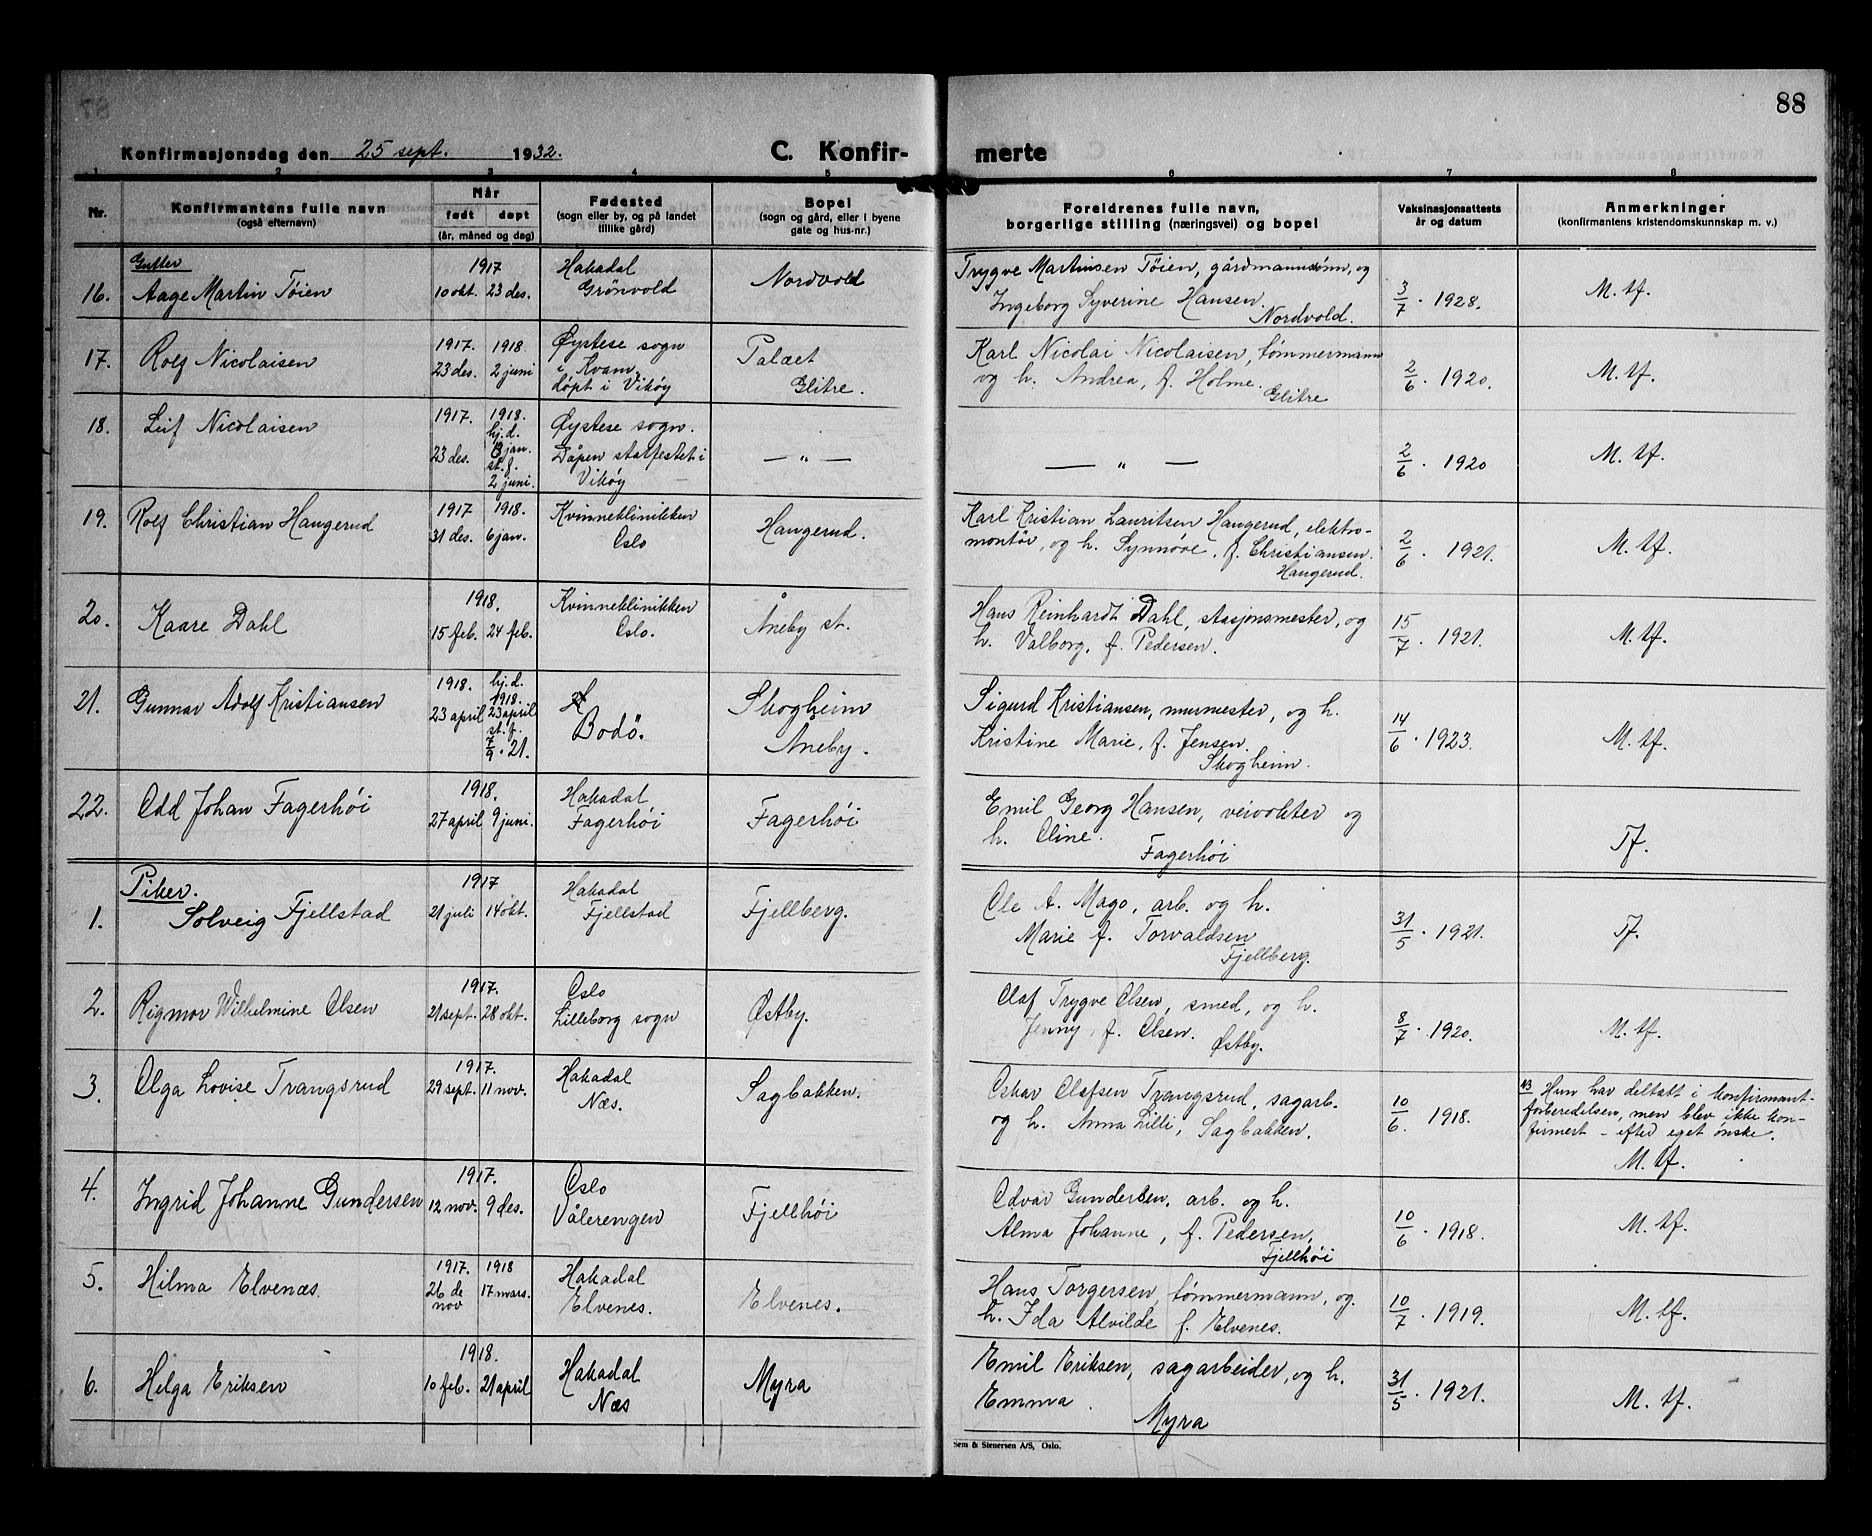 88
Konfirmasjonsdag den 25 sept. 1932.
C. Konfir-
merte
1 2 3 4 5 6 7 8
Nr.
Konfirmantens fulle navn
(også efternavn)
Når
født døpt
(år, måned og dag)
Fødested
(sogn eller by, og på landet
tillike gård)
Bopel
(sogn og gård, eller i byene
gate og hus-nr.)
Foreldrenes fulle navn,
borgerlige stilling (næringsvei) og bopel
Vaksinasjonsattests
år og datum
Anmerkninger
(konfirmantens kristendomskunnskap m. v.)
Gutter
16. Aage Martin Töien
1917
10 okt. 23 des.
Hakadal
Grönvold
Nordvold
Trygve Martinsen Töien, gårdmannssönn, og
Ingeborg Syverine Hansen.
Nordvold.
3/7 . 1928.
M. tf.
17. Rolf Nicolaisen
1917. 1918
23 des. 2 juni
Øystese sogn
i Kvam.
döpt i Viköy
Palæet
Glitre.
Karl Nicolai Nicolaisen, tömmermann
og h. Andrea, f. Holme.
Glitre
2/6 . 1920.
M. tf.
18. Leif Nicolaisen
1917. 1918.
hj.d.
23 des. 3 jan.
st. f.
2 juni.
Øystese sogn.
Dåpen statfestet i
Viköy
— " —
— " —
2/6 . 1920
M. tf.
19. Rolf Christian Haugerud
1917 1918.
31 des. 6 jan.
Kvinneklinikken
Oslo
Haugerud.
Karl Kristian Lauritsen Haugerud, elektro-
montör, og h. Synnöve, f. Christiansen.
Haugerud.
2/6 . 1921.
M. tf.
20. Kaare Dahl
1918.
15 feb. 24 feb.
Kvinneklinikken
Oslo.
Åneby st.
Hans Reinhardt Dahl, stasjonsmester, og
h. Valborg, f. Pedersen.
15/7 . 1921.
M. tf.
21. Gunnar Adolf Kristiansen
1918. hj.d.
1918.
23 april 23 april
st. f.
7/9 . 21.
Bodö.
Skogheim
Åneby.
Sigurd Kristiansen, murmester, og h.
Kristine Marie, f. Jensen.
Skogheim.
14/6 . 1923.
M. tf.
22. Odd Johan Fagerhöi
1918.
27 april 9 juni.
Hakadal
Fagerhöi
Fagerhöi
Emil Georg Hansen, veivokter og
h. Oline.
Fagerhöi
Tf.
Piker.
1. Solveig Fjellstad
1917
21 juli 14 okt.
Hakadal
Fjellstad
Fjellberg.
Ole A. Mago, arb. og h.
Marie f. Torvaldsen
Fjellberg.
31/5 . 1921.
Tf.
2. Rigmor Wilhelmine Olsen
1917.
21 sept. 28 okt.
Oslo
Lilleborg sogn
Østby.
Olaf Trygve Olsen, smed, og h.
Jenny, f. Olsen.
Østby.
8/7 . 1920.
M. tf.
3. Olga Lovise Trangsrud
1917.
29 sept. 11 nov.
Hakadal
Næs.
Sagbakken.
Oskar Olafsen Trangsrud, sagarb.
og h. Anna Lilli, Sagbakken.
10/6. 1918.
NB Hun har deltatt i konfirmant-
forberedelsen, men blev ikke kon-
firmert – efter eget önske.
M. tf.
4. Ingrid Johanne Gundersen
1917.
12 nov. 9 des.
Oslo
Vålerengen
Fjellhöi
Odvar Gundersen, arb. og h.
Alma Johanne, f. Pedersen,
Fjellhöi
10/6 . 1918.
M. tf.
5. Hilma Elvenæs.
1917. 1918
26 de
nov
17 mars.
Hakadal
Elvenes.
Elvenes.
Hans Torgersen tömmermann, og
h. Ida Alvilde f. Elvenes.
10/7 . 1919.
M. tf.
6. Helga Eriksen
1918.
10 feb. 21 april
Hakadal
Næs
Myra
Emil Eriksen, sagarbeider, og h.
Emma.
Myra
31/5 . 1921.
M. tf.
Sem & Stenersen A/S, Oslo.